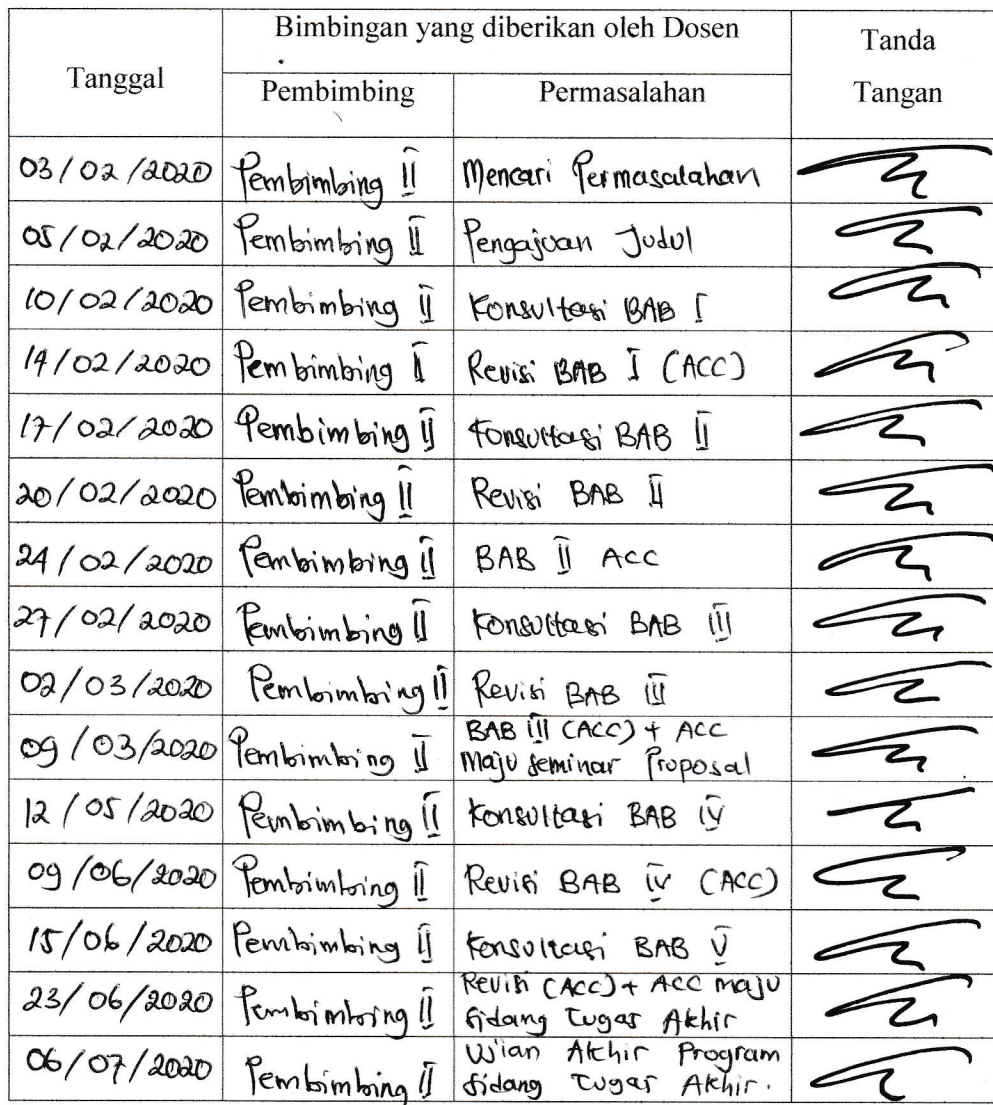 Tanggal
Bimbingan yang diberikan oleh Dosen
Tanda
Tangan
Pembimbing
Permasalahan
03/02/2020 Pembimbing II Mencari Permasalahan
05/02/2020 Pembimbing II Pengajuan Judul
10/02/2020 Pembimbing II Konsultasi BAB I
14/02/2020 Pembimbing II Revisi BAB I (ACC)
17/02/2020 Pembimbing II Konsultasi BAB II
20/02/2020 Pembimbing II Revisi BAB II
24/02/2020 Pembimbing II BAB II ACC
27/02/2020 Pembimbing II Konsultasi BAB III
02/03/2020 Pembimbing II Revisi BAB III
09/03/2020 Pembimbing II BAB III (ACC) + ACC
Maju Seminar Proposal
12/05/2020 Pembimbing II Konsultasi BAB IV
09/06/2020 Pembimbing II Revisi BAB IV (ACC)
15/06/2020 Pembimbing II Konsultasi BAB V
23/06/2020 Pembimbing II Revisi (ACC) + ACC maju
Sidang Tugas Akhir
06/07/2020 Pembimbing II Ujian Akhir Program
Sidang Tugas Akhir.